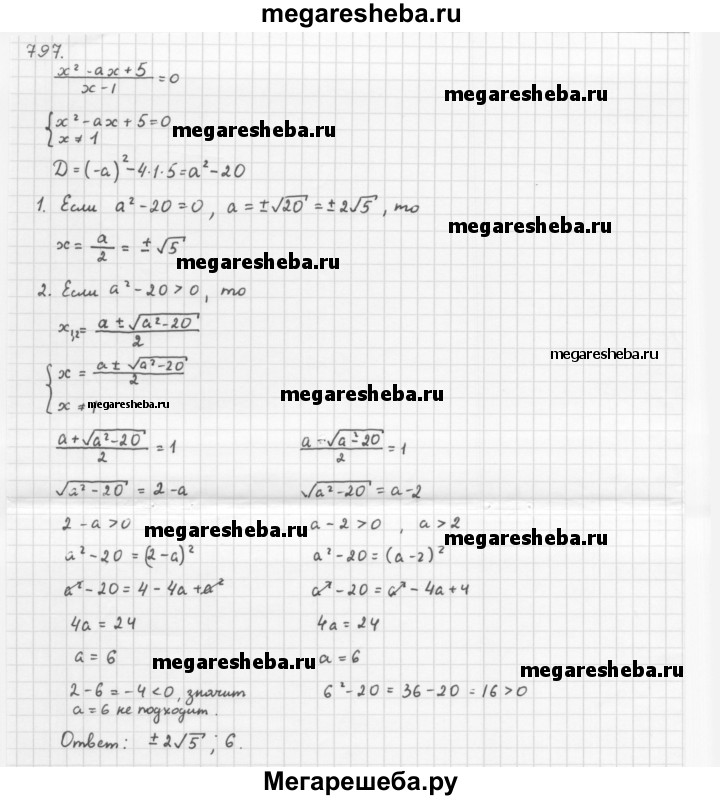 megaresheba.ru
797.
(x² - ax + 5)/(x - 1) = 0
megaresheba.ru
{ x² - ax + 5 = 0
x ≠ 1
megaresheba.ru
D = (-a)² - 4·1·5 = a² - 20
1. Если a² - 20 = 0, a = ±√20 = ±2√5, то
megaresheba.ru
x = a/2 = ±√5
megaresheba.ru
2. Если a² - 20 > 0, то
x₁,₂ = (a ± √(a² - 20))/2
megaresheba.ru
{ x = (a ± √(a² - 20))/2
x ≠
megaresheba.ru
megaresheba.ru
(a + √(a² - 20))/2 = 1 (a - √(a² - 20))/2 = 1
√(a² - 20) = 2 - a √(a² - 20) = a - 2
2 - a > 0 a - 2 > 0, a > 2
megaresheba.ru
megaresheba.ru
a² - 20 = (2 - a)² a² - 20 = (a - 2)²
a² - 20 = 4 - 4a + a² a² - 20 = a² - 4a + 4
4a = 24 4a = 24
a = 6 a = 6
megaresheba.ru
megaresheba.ru
2 - 6 = -4 < 0, значит 6² - 20 = 36 - 20 = 16 > 0
a = 6 не подходит.
Ответ: ±2√5; 6.
Мегарешеба.ру